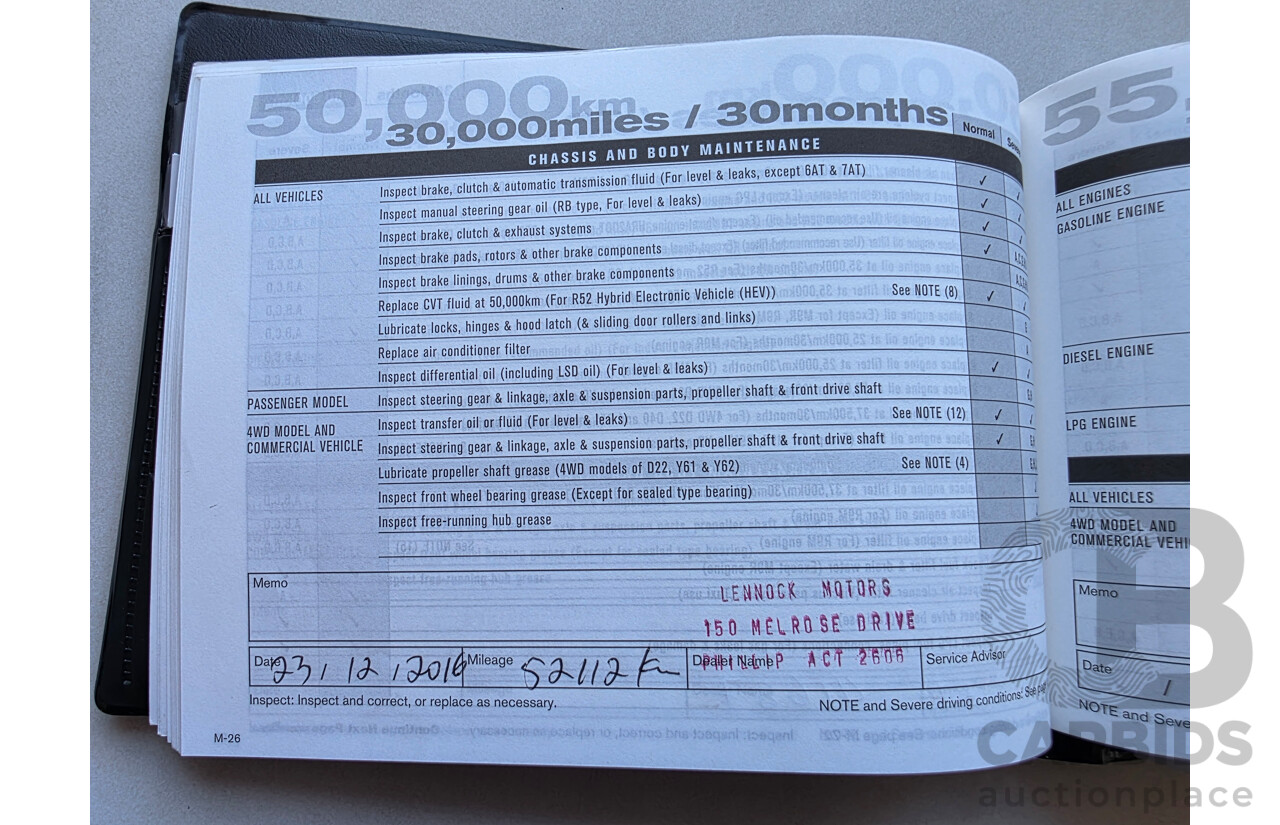 50,000km
30,000miles / 30months
CHASSIS AND BODY MAINTENANCE
Normal
ALL VEHICLES
Inspect brake, clutch & automatic transmission fluid (For level & leaks, except 6AT & 7AT) ✓
Inspect manual steering gear oil (RB type, For level & leaks) ✓
Inspect brake, clutch & exhaust systems ✓
Inspect brake pads, rotors & other brake components ✓
Inspect brake linings, drums & other brake components
Replace CVT fluid at 50,000km (For R52 Hybrid Electronic Vehicle (HEV)) See NOTE (8) ✓
Lubricate locks, hinges & hood latch (& sliding door rollers and links)
Replace air conditioner filter
Inspect differential oil (including LSD oil) (For level & leaks) ✓
PASSENGER MODEL Inspect steering gear & linkage, axle & suspension parts, propeller shaft & front drive shaft
4WD MODEL AND
COMMERCIAL VEHICLE
Inspect transfer oil or fluid (For level & leaks) See NOTE (12) ✓
Inspect steering gear & linkage, axle & suspension parts, propeller shaft & front drive shaft ✓
Lubricate propeller shaft grease (4WD models of D22, Y61 & Y62) See NOTE (4)
Inspect front wheel bearing grease (Except for sealed type bearing)
Inspect free-running hub grease
Memo
LENNOCK MOTORS
150 MELROSE DRIVE
PHILLIP ACT 2606
Date 23, 12, 2016 Mileage 52112 km Dealer Name Service Advisor
Inspect: Inspect and correct, or replace as necessary.
NOTE and Severe driving conditions: See
M-26
55,
ALL ENGINES
GASOLINE ENGINE
DIESEL ENGINE
LPG ENGINE
ALL VEHICLES
4WD MODEL AND
COMMERCIAL VEHI
Memo
Date /
NOTE and Seve
CARBIDS
auctionplace